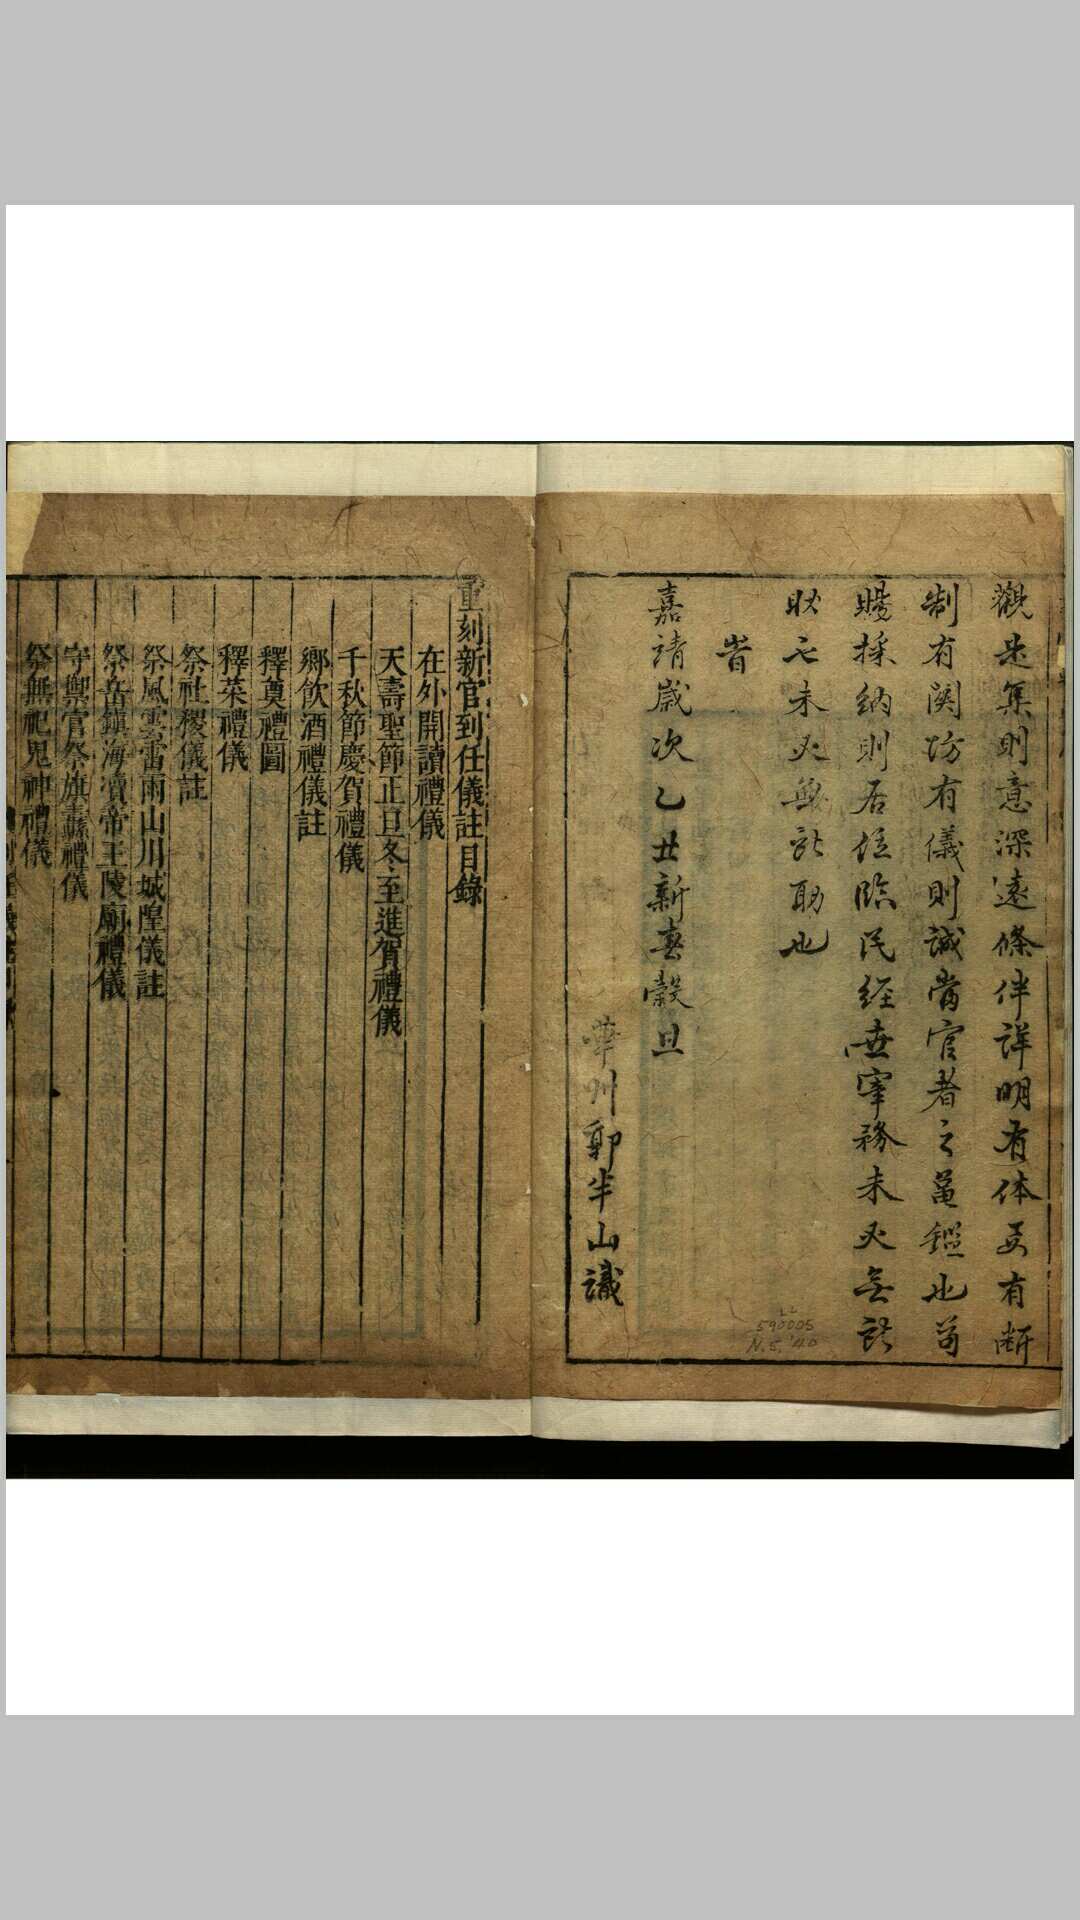 觀是集則意深遠條件詳明有体要有斷
制有関防有儀則誠當官者之龜鑑也苟
賜採納則居位臨民經世宰務未必無所
㕥云未必無所助也
旹
嘉靖歲次乙丑新春穀旦
華州郭半山識
LL
590005
N. 5, '40
重刻新官到任儀註目錄
在外開讀禮儀
天壽聖節正旦冬至進賀禮儀
千秋節慶賀禮儀
鄉飲酒禮儀註
釋奠禮圖
釋菜禮儀
祭社稷儀註
祭風雲雷雨山川城隍儀註
祭岳鎮海瀆帝王陵廟禮儀
守禦官祭旗纛禮儀
祭無祀鬼神禮儀